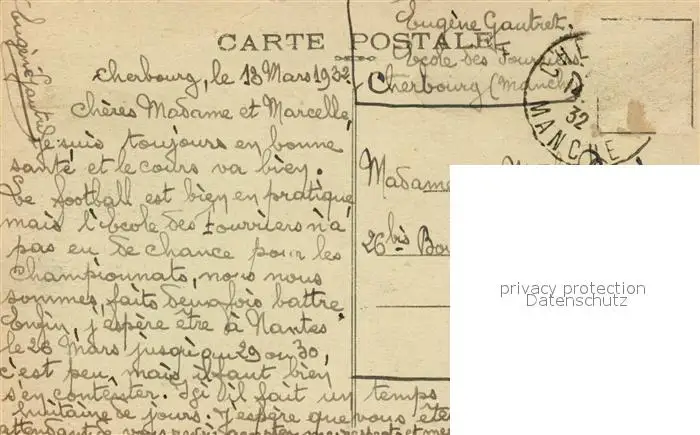 Eugène Gautret
CARTE POSTALE
Eugène Gautret.
École des Fourriers
Cherbourg (Manche)
MANCHE
32
Cherbourg, le 13 Mars 1932.
Chères Madame et Marcelle,
Je suis toujours en bonne
santé et le cours va bien.
Le football est bien en pratique,
mais l'école des Fourriers n'a
pas eu de chance pour les
Championnats, nous nous
sommes faits deux fois battre.
Enfin, j'espère être à Nantes
le 26 Mars jusqu'au 29 ou 30,
c'est peu, mais il faut bien
s'en contenter. Ici il fait un temps
huitaine de jours. J'espère que vous êtes
attendant de vous
Madame
26 bis Bou
privacy protection
Datenschutz